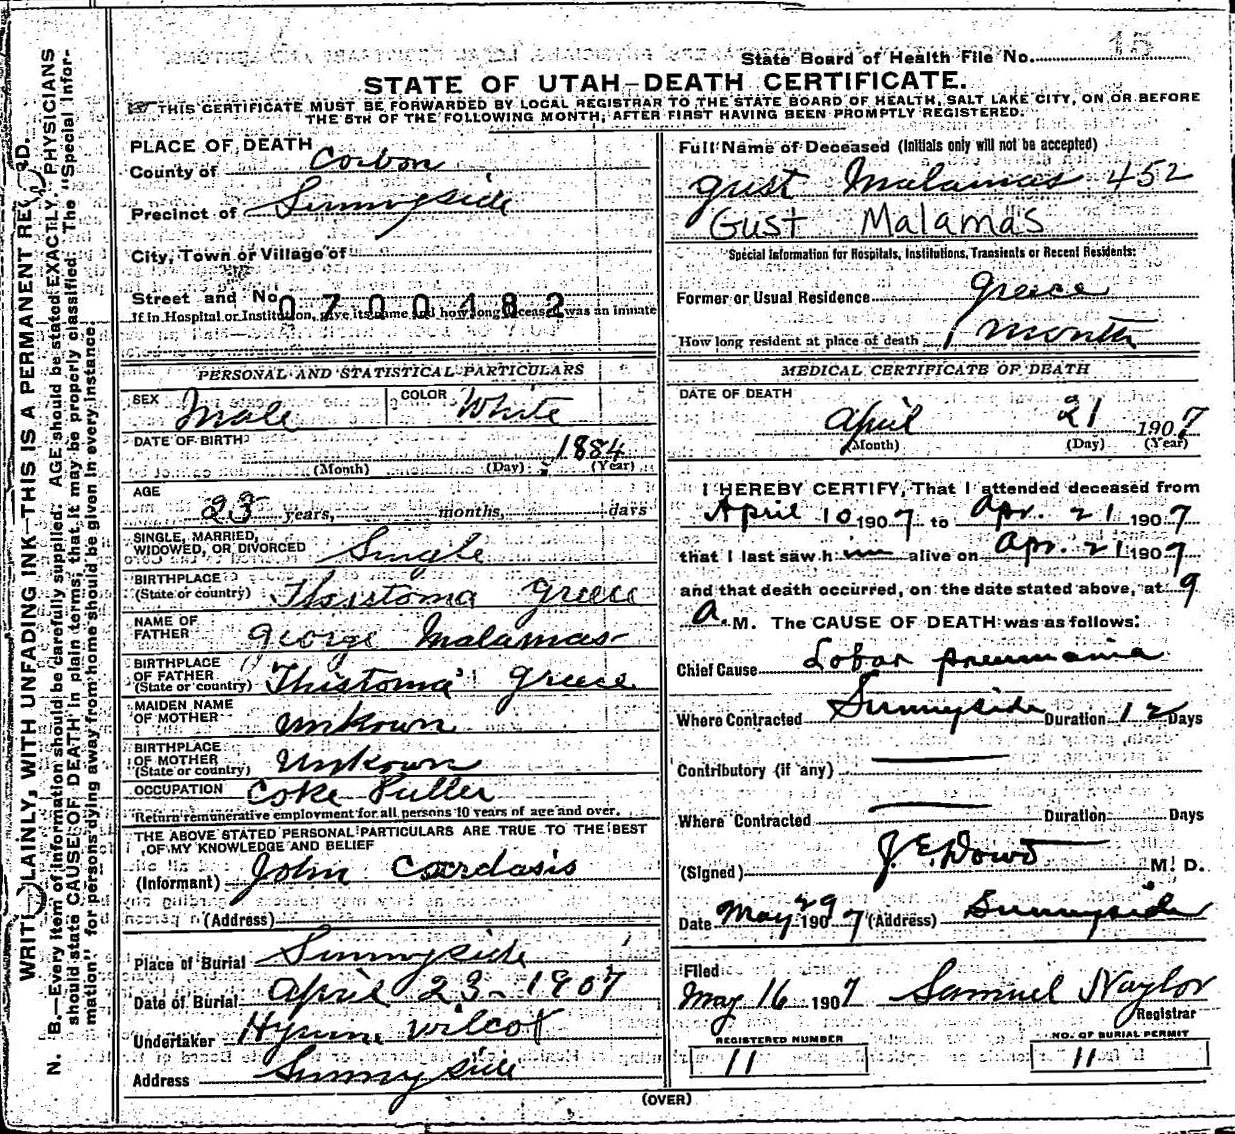 State Board of Health File No. 15
STATE OF UTAH—DEATH CERTIFICATE.
THIS CERTIFICATE MUST BE FORWARDED BY LOCAL REGISTRAR TO THE STATE BOARD OF HEALTH, SALT LAKE CITY, ON OR BEFORE
THE 5TH OF THE FOLLOWING MONTH, AFTER FIRST HAVING BEEN PROMPTLY REGISTERED.
PLACE OF DEATH
County of Carbon
Precinct of Sunnyside
City, Town or Village of
Street and No. 0700482
If in Hospital or Institution, give its name and how long deceased was an inmate
Full Name of Deceased (Initials only will not be accepted)
Gust Malamas 452
Gust Malamas
Special Information for Hospitals, Institutions, Transients or Recent Residents:
Former or Usual Residence Greece
How long resident at place of death 1 month
PERSONAL AND STATISTICAL PARTICULARS
SEX Male COLOR White
DATE OF BIRTH 1884
(Month) (Day) (Year)
AGE
23 years, months, days
SINGLE, MARRIED,
WIDOWED, OR DIVORCED Single
BIRTHPLACE
(State or country) Thistoma Greece
NAME OF
FATHER George Malamas
BIRTHPLACE
OF FATHER
(State or country) Thistoma Greece
MAIDEN NAME
OF MOTHER Unkown
BIRTHPLACE
OF MOTHER
(State or country) Unkown
OCCUPATION Coke Puller
Return remunerative employment for all persons 10 years of age and over.
THE ABOVE STATED PERSONAL PARTICULARS ARE TRUE TO THE BEST
OF MY KNOWLEDGE AND BELIEF
(Informant) John Cardasis
(Address)
Place of Burial Sunnyside
Date of Burial April 23-1907
Undertaker Hyrum Wilcox
Address Sunnyside
MEDICAL CERTIFICATE OF DEATH
DATE OF DEATH
April 21 1907
(Month) (Day) (Year)
I HEREBY CERTIFY, That I attended deceased from
April 10 1907 to Apr. 21 1907
that I last saw him alive on Apr. 21 1907
and that death occurred, on the date stated above, at 9
A. M. The CAUSE OF DEATH was as follows:
Chief Cause Lobar pneumonia
Where Contracted Sunnyside Duration 12 Days
Contributory (if any)
Where Contracted Duration Days
(Signed) J. E. Dowd M. D.
Date May 29 1907 (Address) Sunnyside
Filed
May 16 1907 Samuel Naylor
Registrar
REGISTERED NUMBER
11
NO. OF BURIAL PERMIT
11
(OVER)
WRITE PLAINLY, WITH UNFADING INK—THIS IS A PERMANENT RECORD.
N. B.—Every item of information should be carefully supplied. AGE should be stated EXACTLY. PHYSICIANS
should state CAUSE OF DEATH in plain terms, that it may be properly classified. The "Special Infor-
mation" for persons dying away from home should be given in every instance.